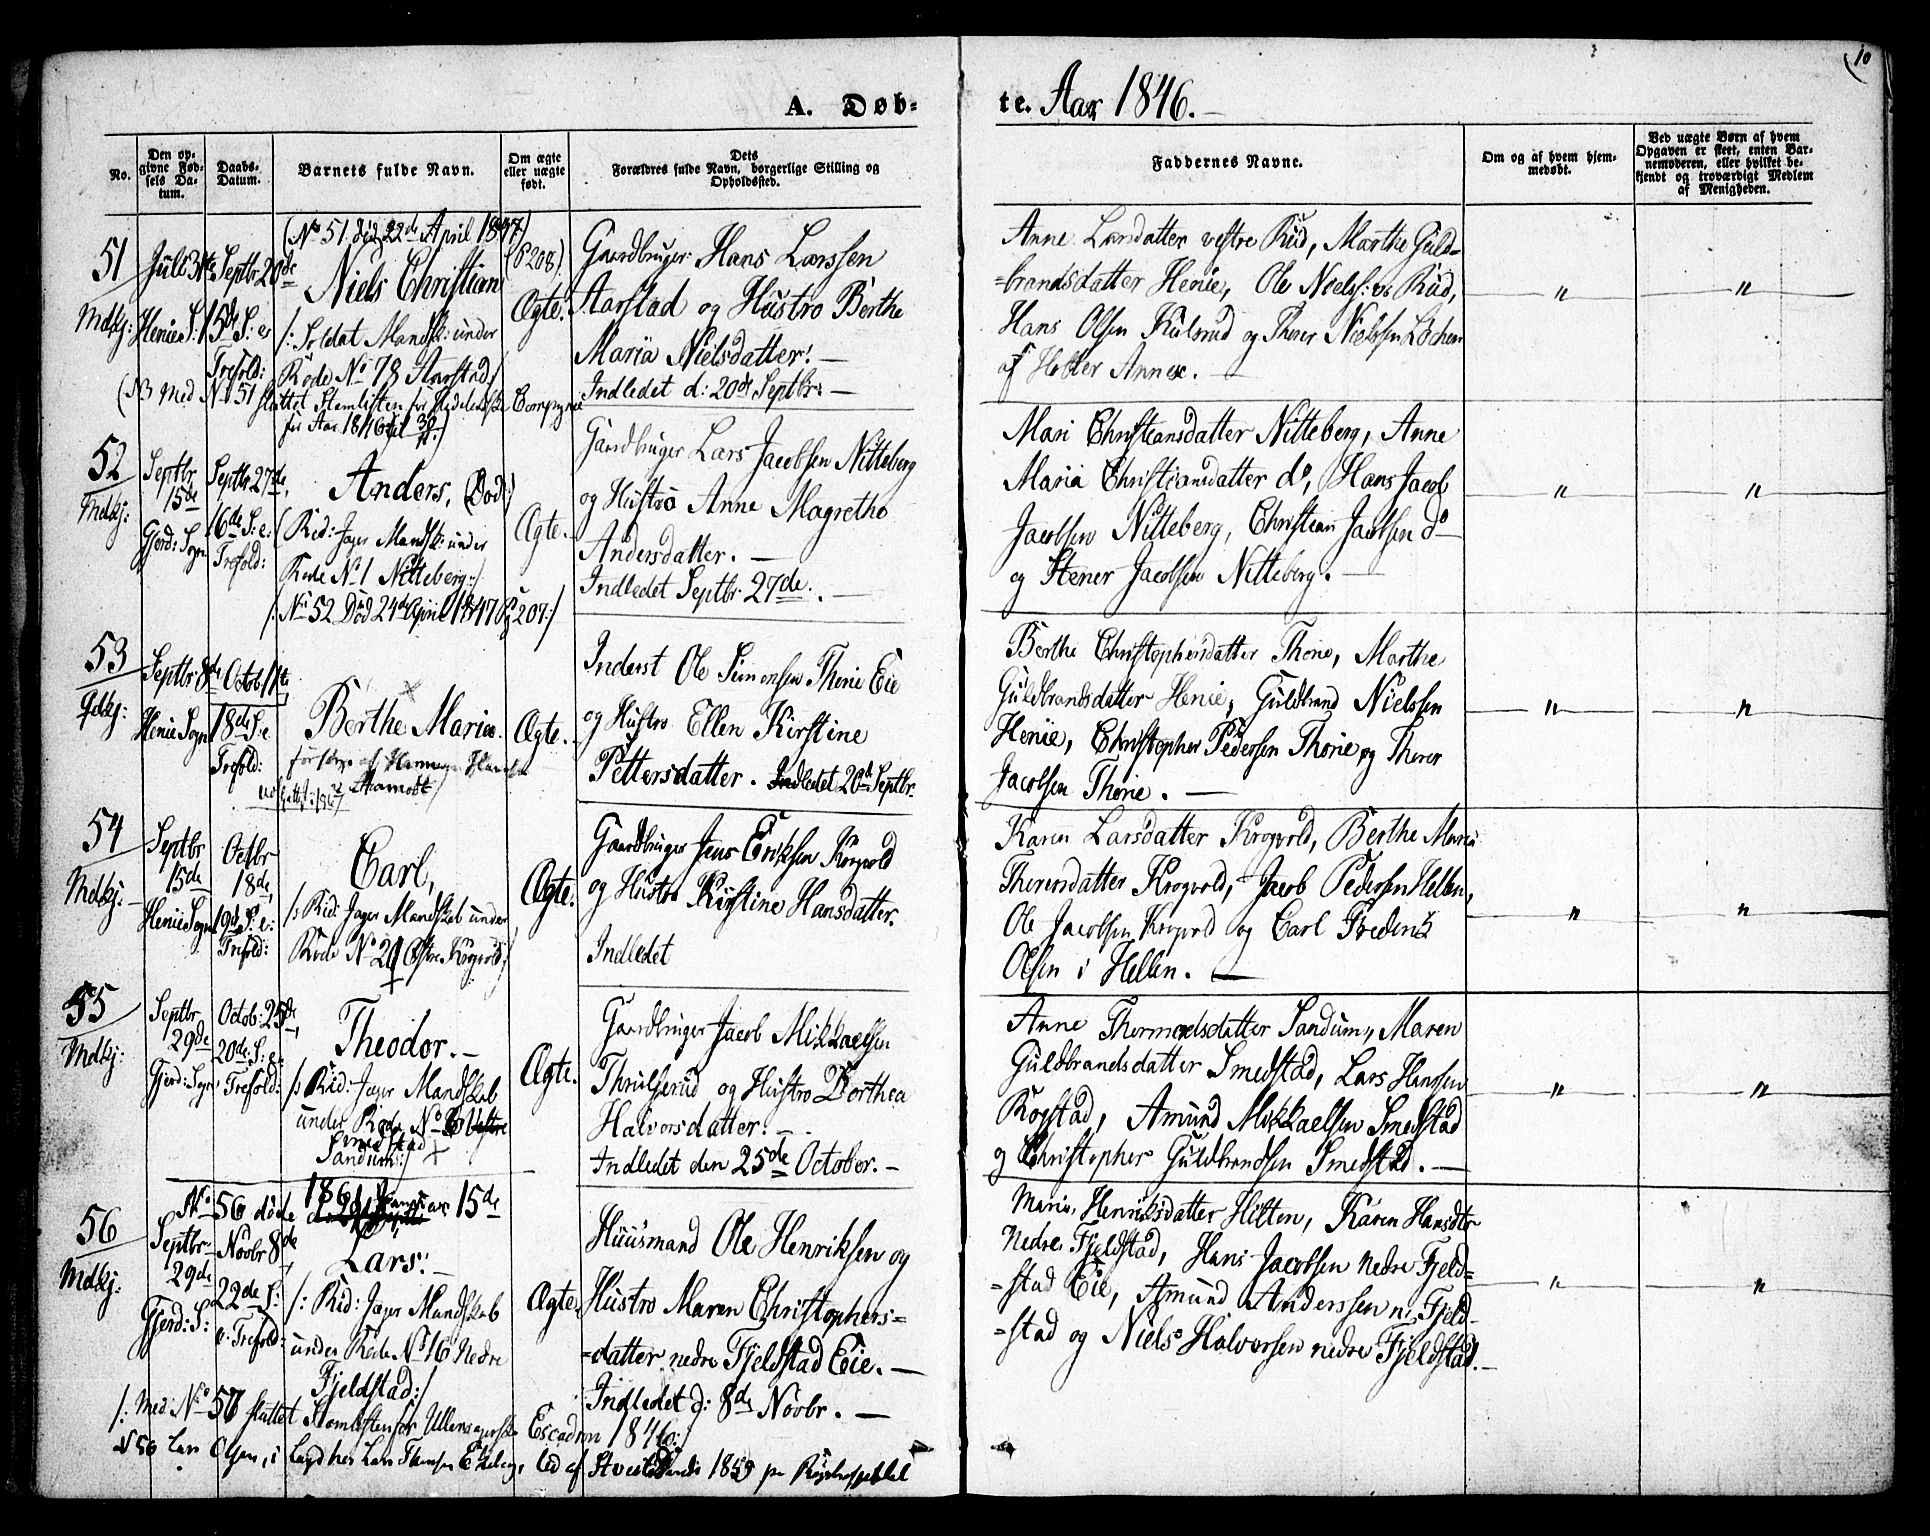 10
A. Døb-
te. Aar 1846.
No.
Den op-
givne Fød-
sels Da-
tum.
Daabs-
Datum.
Barnets fulde Navn.
Om ægte
eller uægte
født.
Dets
Forældres fulde Navn, borgerlige Stilling og
Opholdssted.
Faddernes Navne.
Om og af hvem hjem-
medøbt.
Ved uægte Børn af hvem
Opgaven er skeet, enten Bar-
nemoderen, eller hvilket be-
kjendt og troværdigt Medlem
af Menigheden.
51
Mdkj:
Juli 31te
Henie S:
Septbr 20de
15de S: e:
Trefold:
(No 51 død 22de April 1847)
(P 208)
Niels Christian
/: Soldat Mandsk: under
Rode No 78 Aarstad/
(NB med No 51 sluttet Stemlisten for Compagnie
for Aar 1846
Ægte.
Gaardbruger Hans Larssen
Aarstad og Hustro Berthe
Maria Nielsdatter. —
Indledet d: 20de Septbr. —
Anne Larsdatter vestre Rud, Marthe Guld-
-brandsdatter Henie, Ole Niels: v: Rud,
Hans Olsen Kulsrud og Thorer Nielssen Lochen
af Holter Annex. —
"
"
52
Mdkj:
Septbr
15de
Gjerd: Sogn
Septbr 27de,
16de S: e:
Trefold:
Anders, (Død:)
(Rid: Jæger Mandsk: under
Rode No 1 Nitteberg:/
/: No 52 Død 24de April 1847 Pg 207:/
Ægte.
Gaardbruger Lars Jacobsen Nitteberg
og Hustro Anne Magrethe
Andersdatter. —
Indledet Septbr 27de. —
Mari Christiansdatter Nitteberg, Anne
Maria Christiansdatter do, Hans Jacob
Jacobsen Nitteberg, Christian Jacobsen do
og Stener Jacobsen Nitteberg. —
"
"
53
Qdkj:
Septbr 8de
Henie Sogn
Octob 11te
18de S: e
Trefold:
Berthe Maria.
Ægte.
Inderst Ole Simensen Thorie Eie
og Hustro Ellen Kirstine
Pettersdatter. Indledet 20de Septbr.
Berthe Christophersdatter Thorie, Marthe
Guldbrandsdatter Henie, Guldbrand Nielssen
Henie, Christopher Pedersen Thorie og Thorer
Jacobsen Thorie. —
"
"
54
Mdkj:
Septbr
15de
Henie Sogn
Octbr
18de,
19de S: e:
Trefold:
Carl,
/: Rid: Jæger Mandskab under
Rode No 20 Østre Krogvold/
Ægte.
Gaardbruger Jens Eriksen Krogvold
og Hustro Kirstine Hansdatter.
Indledet
Karen Larsdatter Krogvold, Berthe Maria
Thorersdatter Krogvold, Jacob Pedersen Hellen,
Ole Jacobsen Krogvold og Carl Frederik
Olsen i Hellen. —
"
"
55
Mdkj:
Septbr
29de
Gjerd: Sogn
Octob: 25de,
20de S: e:
Trefold:
Theodor. —
/: Rid: Jæger Mandskab
under Rode No 6 Vestre
Smedstad
Sandum:/
Ægte.
Gaardbruger Jacob Mikkaelsen
Thrulserud og Hustro Dorthea
Halvorsdatter. —
Indledet den 25de October. —
Anne Thormodsdatter Sandum, Maren
Guldbrandsdatter Smedstad, Lars Hanssen
Rogstad, Amund Mikkaelsen Smedstad
og Christopher Guldbrandsen Smedstad. —
"
"
No 56 døde 15de
56
Mdkj:
Septbr
29de
Gjerd: S:
Novbr 8de,
22de S:
e: Trefold:
Lars. —
/: Rid: Jæger Mandskab
under Rode No 16 Nedre
Fjeldstad:/
Ægte.
Huusmand Ole Henriksen og
Hustro Maren Christophers-
-datter nedre Fjeldstad Eie. —
Indledet d: 8de Novbr. —
Maria Henriksdatter Hilten, Karen Hansdtr
Nedre Fjeldstad, Hans Jacobsen nedre Fjeld-
-stad Eie, Amund Anderssen n: Fjeld-
-stad og Niels Halvorsen nedre Fjeldstad. —
"
"
/: Med No 56 sluttet Stemlisten for Ullensagerske Escadron 1846:/